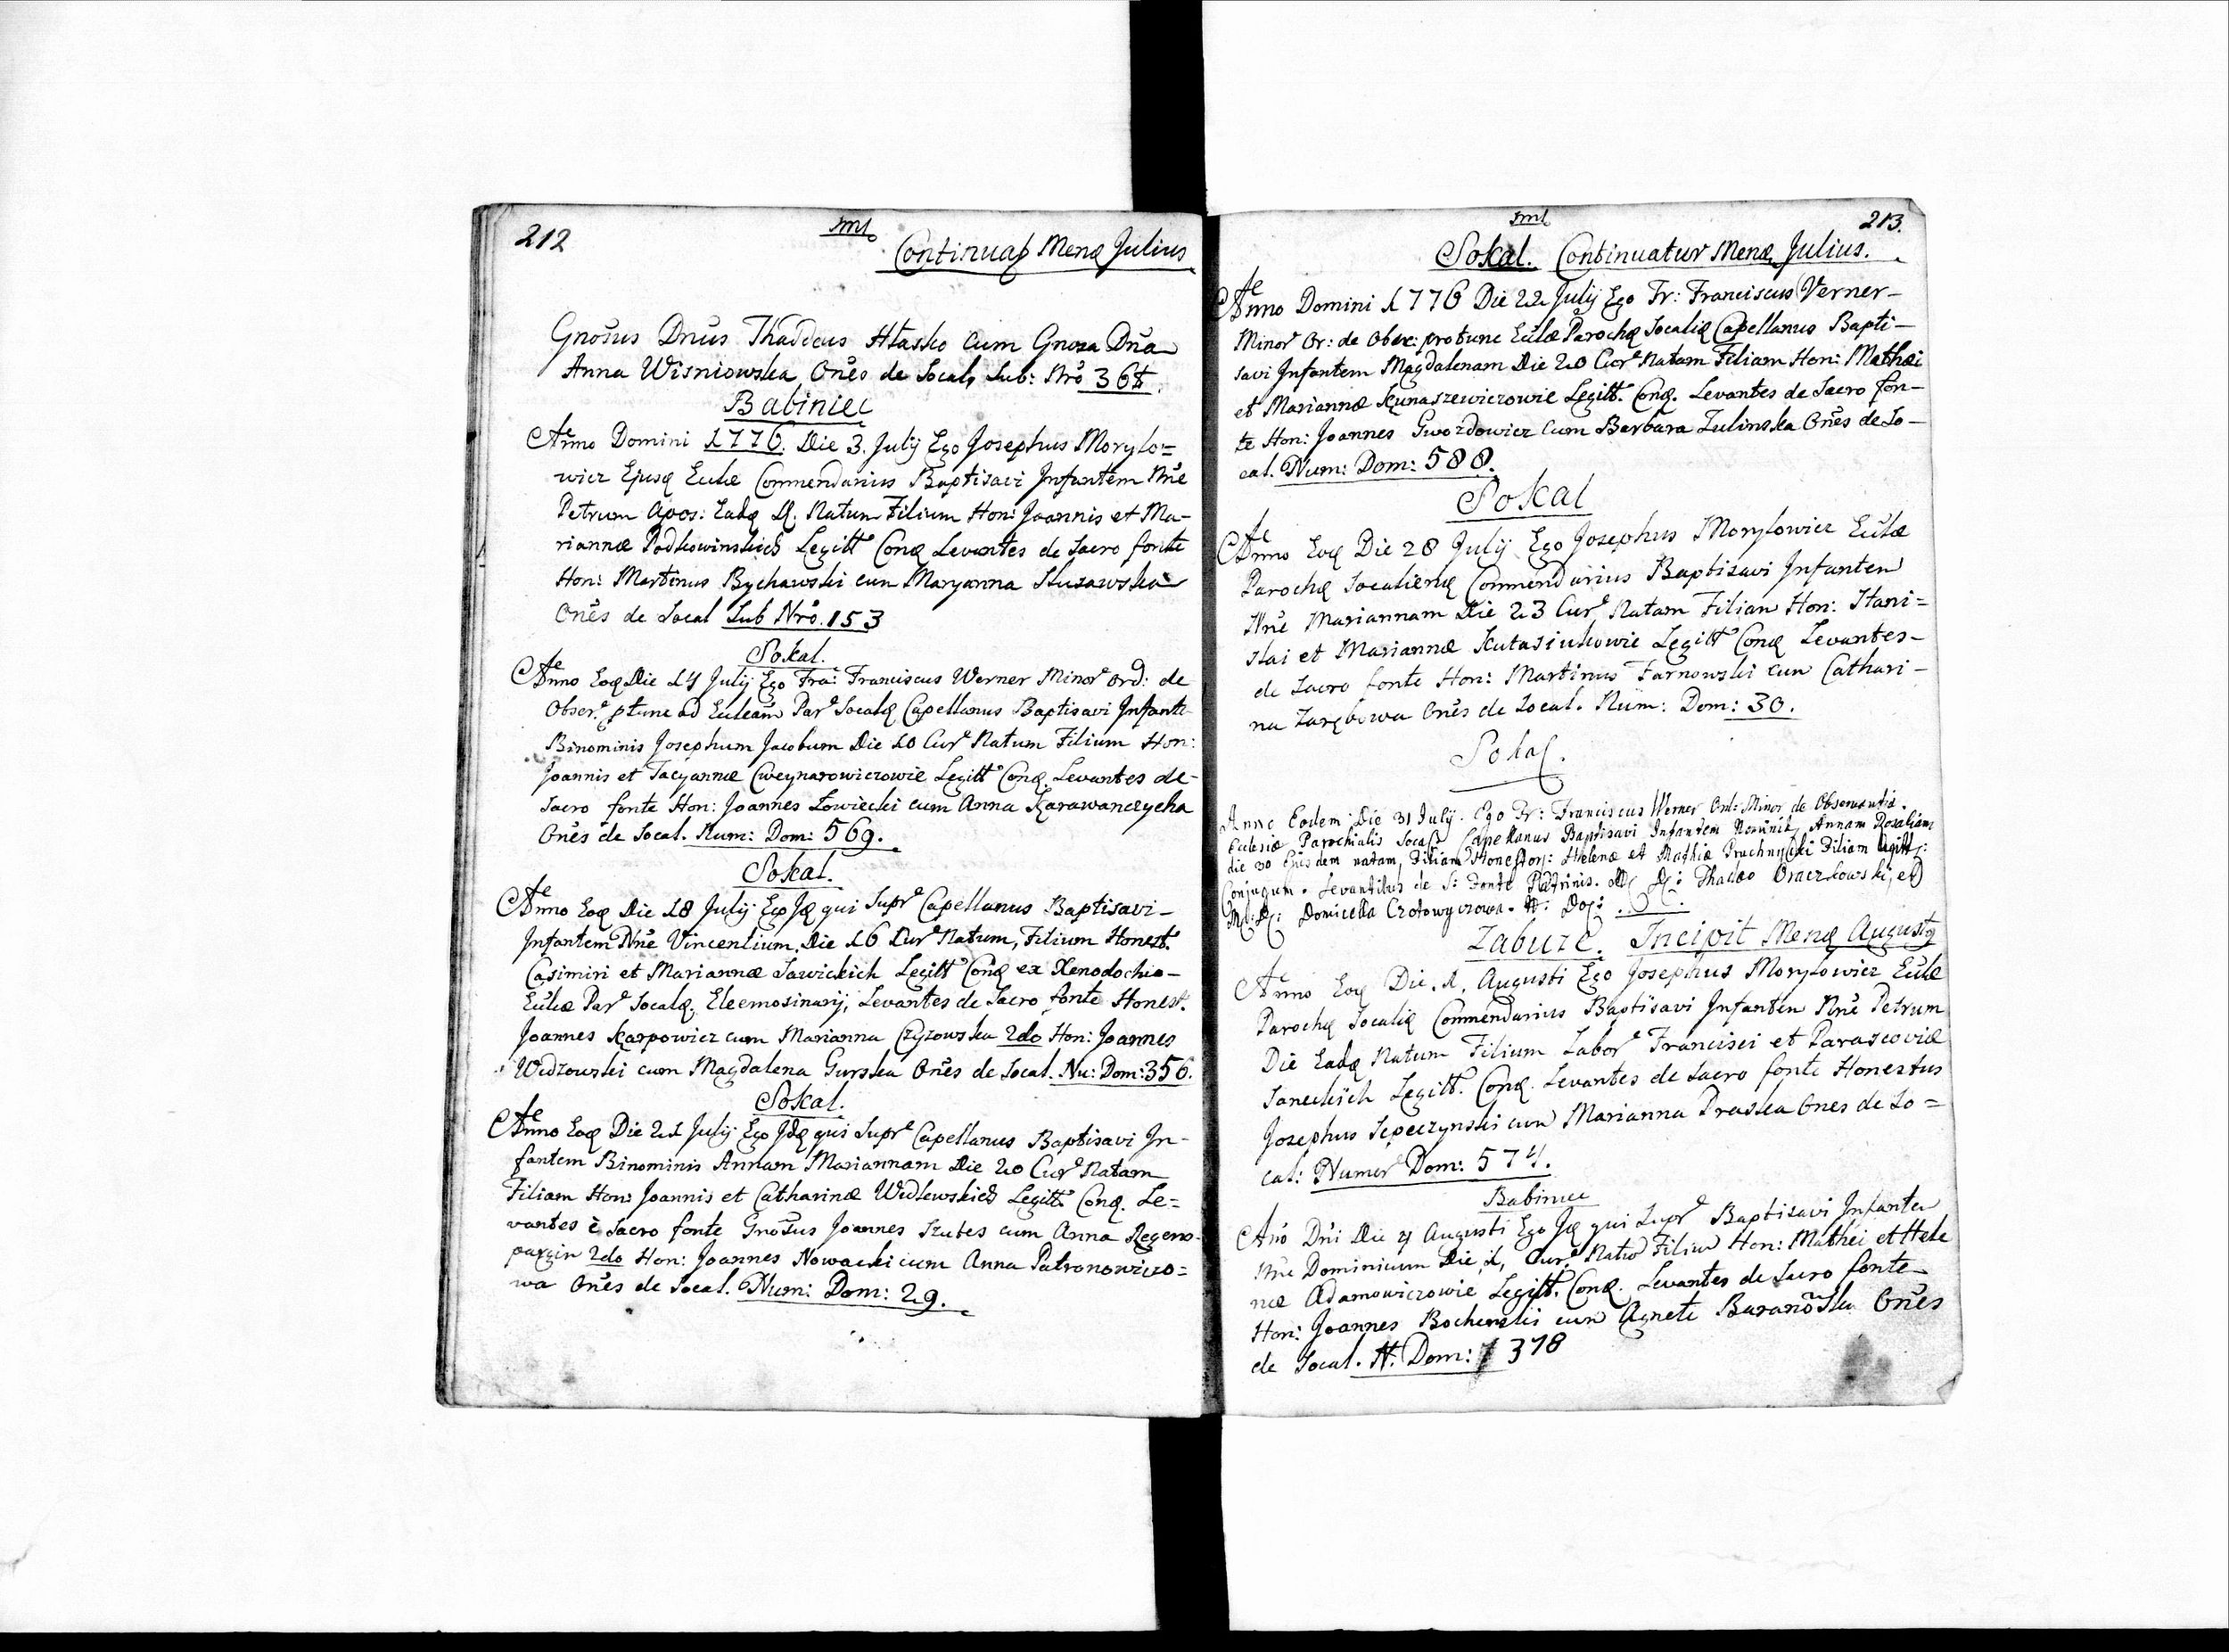 212
Continuat Mens Julius
Gnosus Dnus Thaddeus Hlasko cum Gnosa Dna
Anna Wisniowska Ones de Socal, Sub: Nro 364.
Babiniec
Anno Domini 1776. Die 3. July Ego Josephus Morylo=
wicz Ejusq Eccle Commendarius Baptisavi Infantem Nne
Petrum Apos: Eadq D. Natum Filium Hon: Joannis et Ma-
riannæ Podkowinskich Legitt Conq Levantes de Sacro fonte
Hon: Martinus Bychawski cum Maryanna
Ones de Socal Sub Nro. 153
Sokal.
Anno Eoq Die 14 July Ego Fra: Franciscus Werner Minor Ord: de
Obser: ptunc ad Ecleam Par Socalq Capellanus Baptisavi Infante
Binominis Josephum Jacobum Die 10 Cur Natum Filium Hon:
Joannis et Tacyannæ Cweynarowiczowie Legitt Conq. Levantes de-
Sacro fonte Hon: Joannes Łowiecki cum Anna Karawanczycha
Ones de Socal. Num: Dom: 569.
Sokal.
Anno Eoq Die 18 July Ego Jdq qui Supr Capellanus Baptisavi-
Infantem Nne Vincentium, Die 16 Cur Natum, Filium Honest.
Casimiri et Mariannæ Sawickich Legitt Conq ex Xenodochio-
Eclæ Par Socalq. Eleemosinarij, Levantes de Sacro fonte Honest.
Joannes Karpowicz cum Marianna Czyzowska 2do Hon: Joannes
Widzowski cum Magdalena Gurska Ones de Socal. Nu: Dom: 356.
Sokal.
Anno Eoq Die 21 July Ego Jdq qui Supr Capellanus Baptisavi In-
fantem Binominis Annam Mariannam Die 20 Cur Natam
Filiam Hon: Joannis et Catharinæ Widlewskich Legitt Conq. Le=
vantes è Sacro fonte Gnosus Joannes Szubes cum Anna Regens-
purgin 2do Hon: Joannes Nowacki cum Anna Patronowiczo=
wa Ones de Socal. Num: Dom: 29.
213.
Sokal. Continuatur Mens Julius.
Anno Domini 1776 Die 22 July Ego Fr: Franciscus Verner-
Minor Or: de Obser: protunc Eclæ Parochq Socaliq Capellanus Bapti-
savi Infantem Magdalenam Die 20 Cur Natam Filiam Hon: Mathæi
et Mariannæ Kunaszewiczowie Legitt. Conq. Levantes de Sacro fon-
te Hon: Joannes Gwozdowicz cum Barbara Zulinska Ones de So-
cal. Num: Dom: 588.
Sokal
Anno Eoq Die 28 July Ego Josephus Morylowicz Eclæ
Parochq Socalienq Commendarius Baptisavi Infantem
Nne Mariannam Die 23 Cur Natam Filiam Hon: Stani=
slai et Mariannæ Kutasiukowie Legitt Conq Levantes-
de Sacro fonte Hon: Martinus Tarnowski cum Cathari-
na Zarębowa Ones de Socal. Num: Dom: 30.
Sokal.
Anno Eodem Die 31 July. Ego Fr: Franciscus Werner Ord: Minor de Observantia.
Eclesiæ Parochialis Socal Capellanus Baptisavi Infantem Nominib Annam Rosaliam
die 30 Ejusdem natam, Filiam Honestor: Helenæ et Mathiæ Filiam legitt:
Conjugum. Levantibus de S: Fonte Patrinis. Thadeo Oraczkowski, et
Domicella Czotowyczowa. N: Do:
Zabuze. Incipit Mens Augustq
Anno Eoq Die. 1. Augusti Ego Josephus Morylowicz Eclæ
Parochq Socaliq Commendarius Baptisavi Infantem Nne Petrum
Die Eadq Natum Filium Labor Francisci et Parasceviæ
Saneckich Legitt. Conq. Levantes de Sacro fonte Honestus
Josephus Sepeczynski cum Marianna Praska Ones de So=
cal: Numer Dom: 574.
Babiniec
Ano Dni Die 4 Augusti Ego Jdq qui Supr Baptisavi Infante
Nne Dominicum Die 1, Cur. Natu Filiu Hon: Mathei et Hele
næ Adamowiczowie Legitt. Conq. Levantes de Sacro fonte-
Hon: Joannes Bochenski cum Agnete Baranoska Ones
de Socal. N. Dom: 378